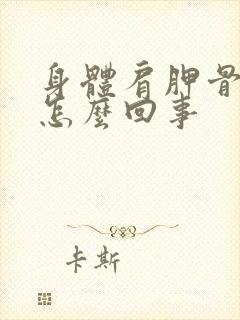 身體肩胛骨
怎麼回事
卡斯